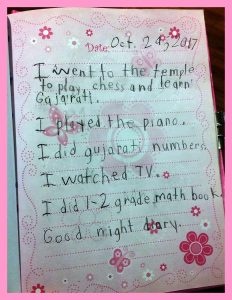 Date: Oct. 24, 2017
I went to the temple
to play chess and learn
Gujarati.
I played the piano.
I did gujarati numbers.
I watched TV.
I did 1-2 grade math book.
Good night diary.